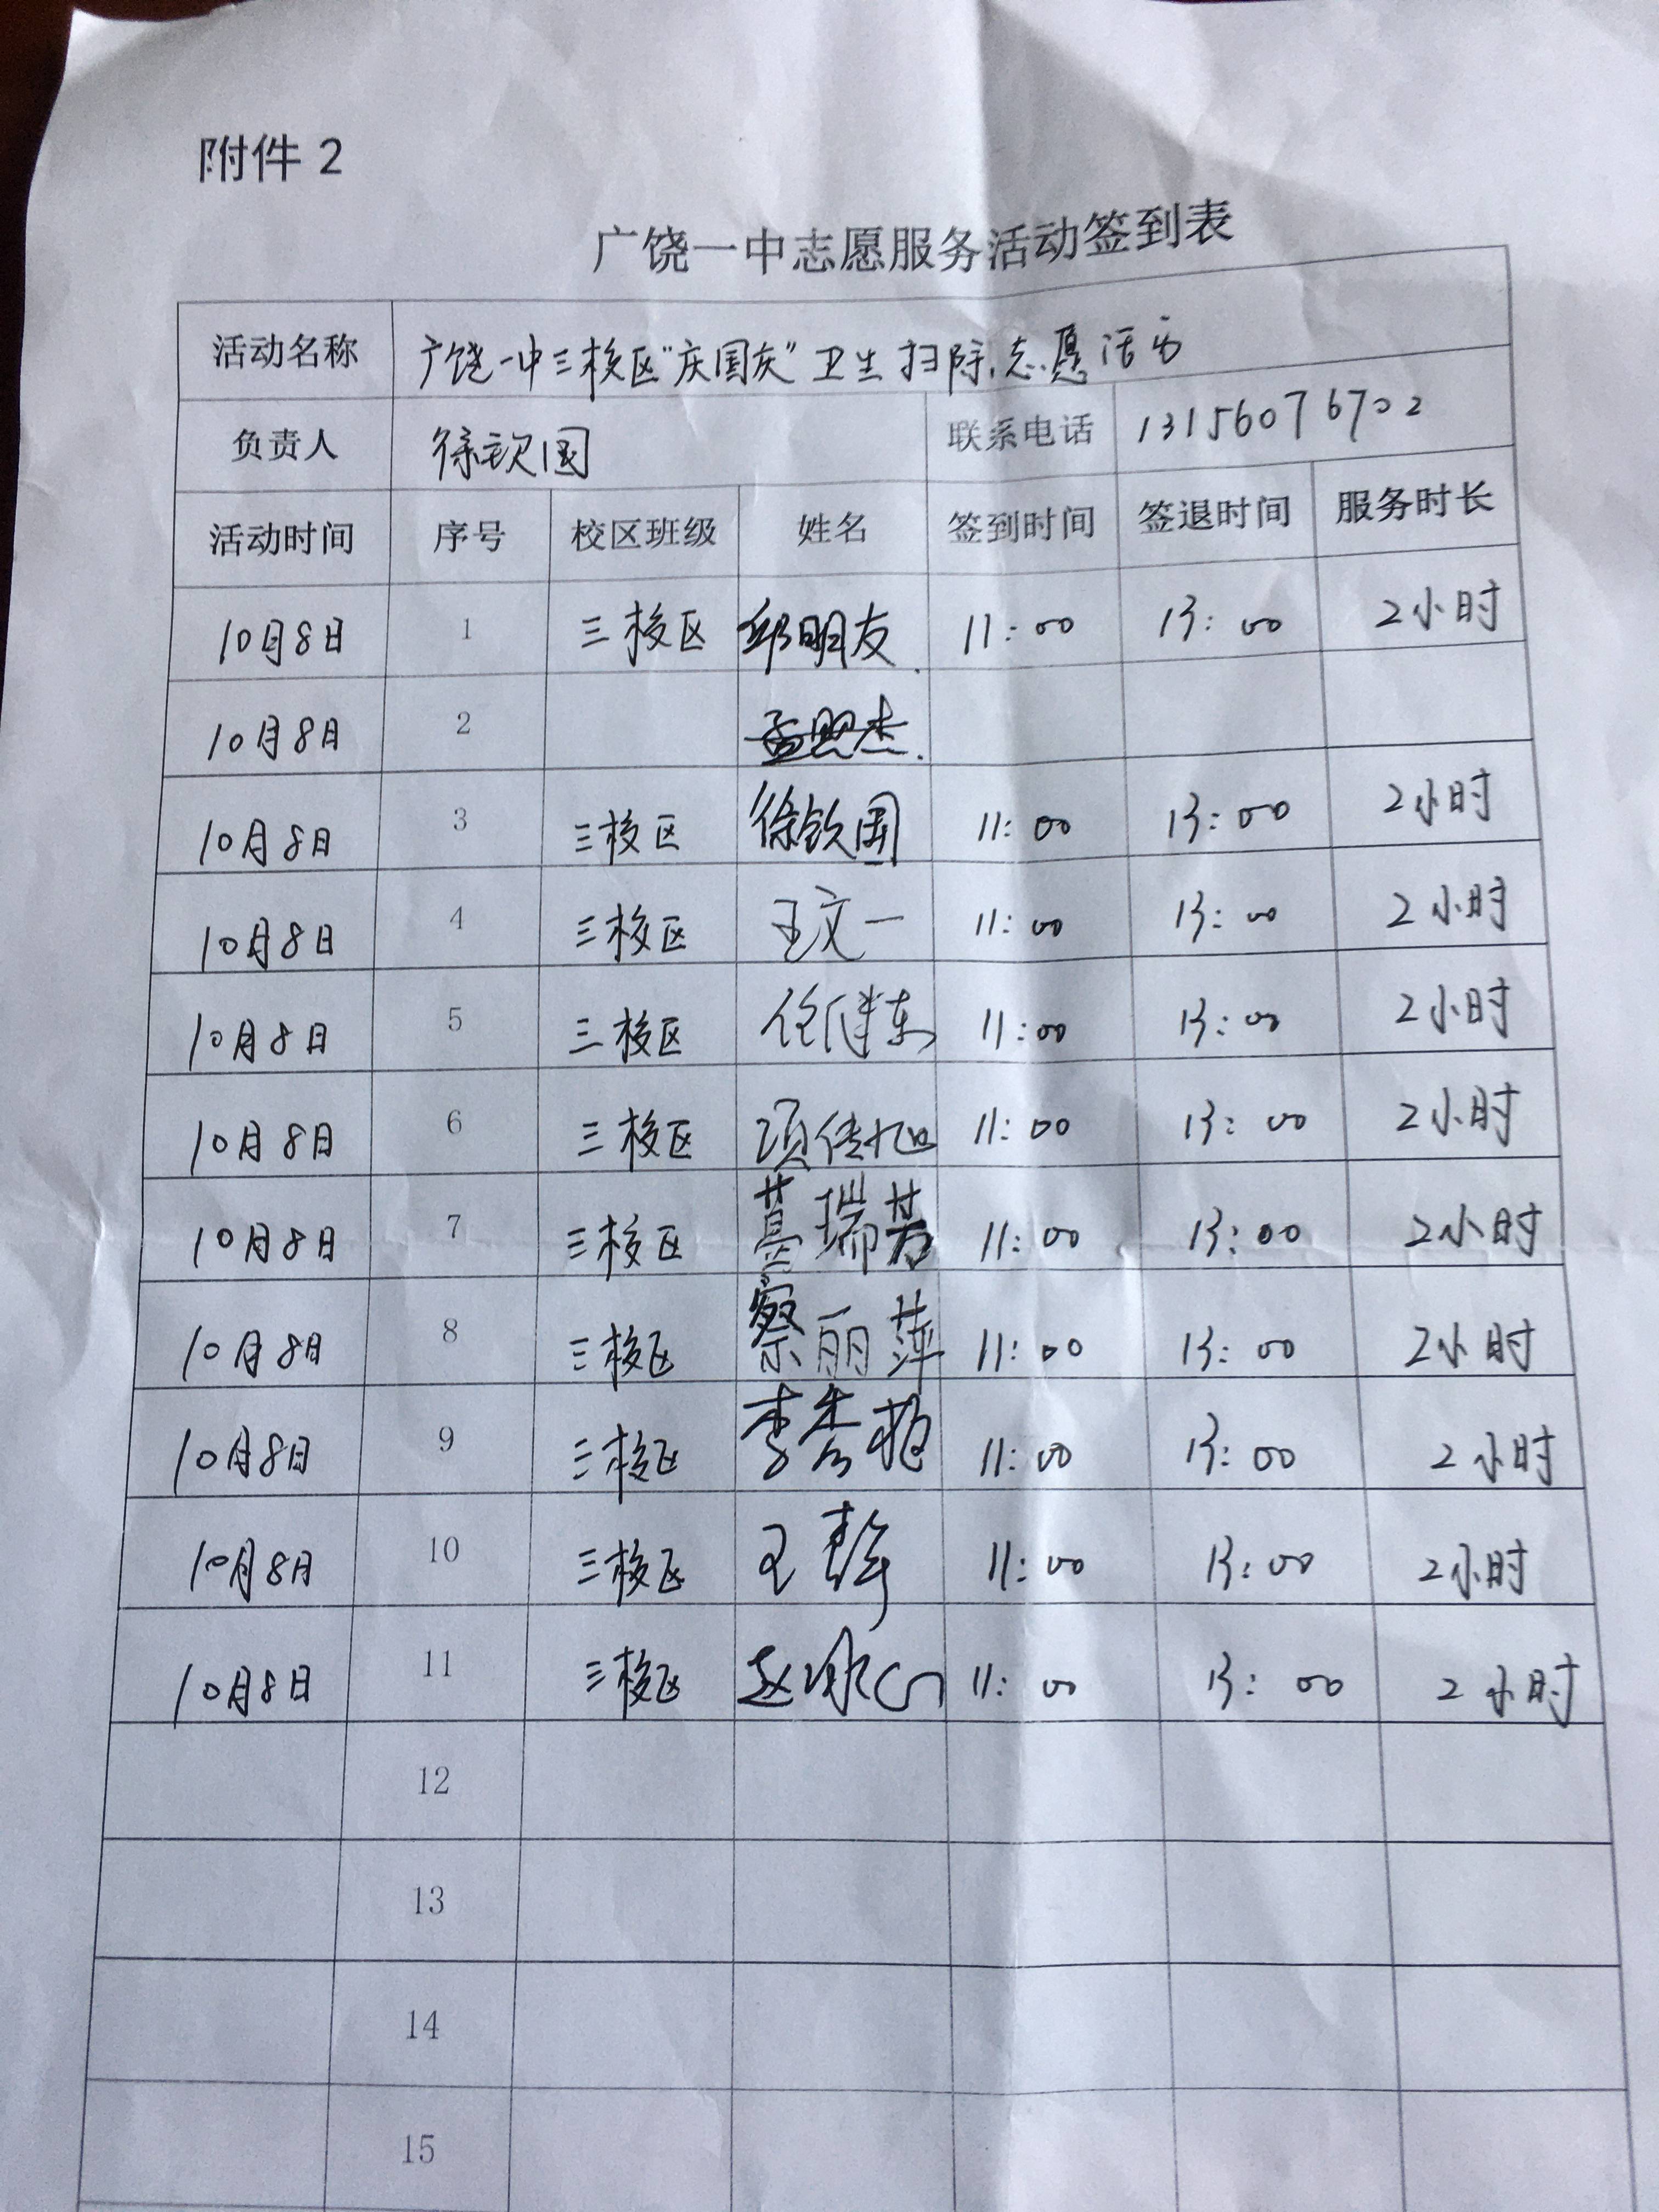 附件 2
广饶一中志愿服务活动签到表
活动名称 广饶一中三校区"庆国庆"卫生扫除志愿活动
负责人 徐钦国 联系电话 13156076702
活动时间 序号 校区班级 姓名 签到时间 签退时间 服务时长
10月8日 1 三校区 邱明友 11:00 13:00 2小时
10月8日 2
10月8日 3 三校区 徐钦国 11:00 13:00 2小时
10月8日 4 三校区 王文一 11:00 13:00 2小时
10月8日 5 三校区 任健东 11:00 13:00 2小时
10月8日 6 三校区 项传旭 11:00 13:00 2小时
10月8日 7 三校区 瑞芳 11:00 13:00 2小时
10月8日 8 三校区 丽萍 11:00 13:00 2小时
10月8日 9 三校区 李秀艳 11:00 13:00 2小时
10月8日 10 三校区 王静 11:00 13:00 2小时
10月8日 11 三校区 赵冰心 11:00 13:00 2小时
12
13
14
15